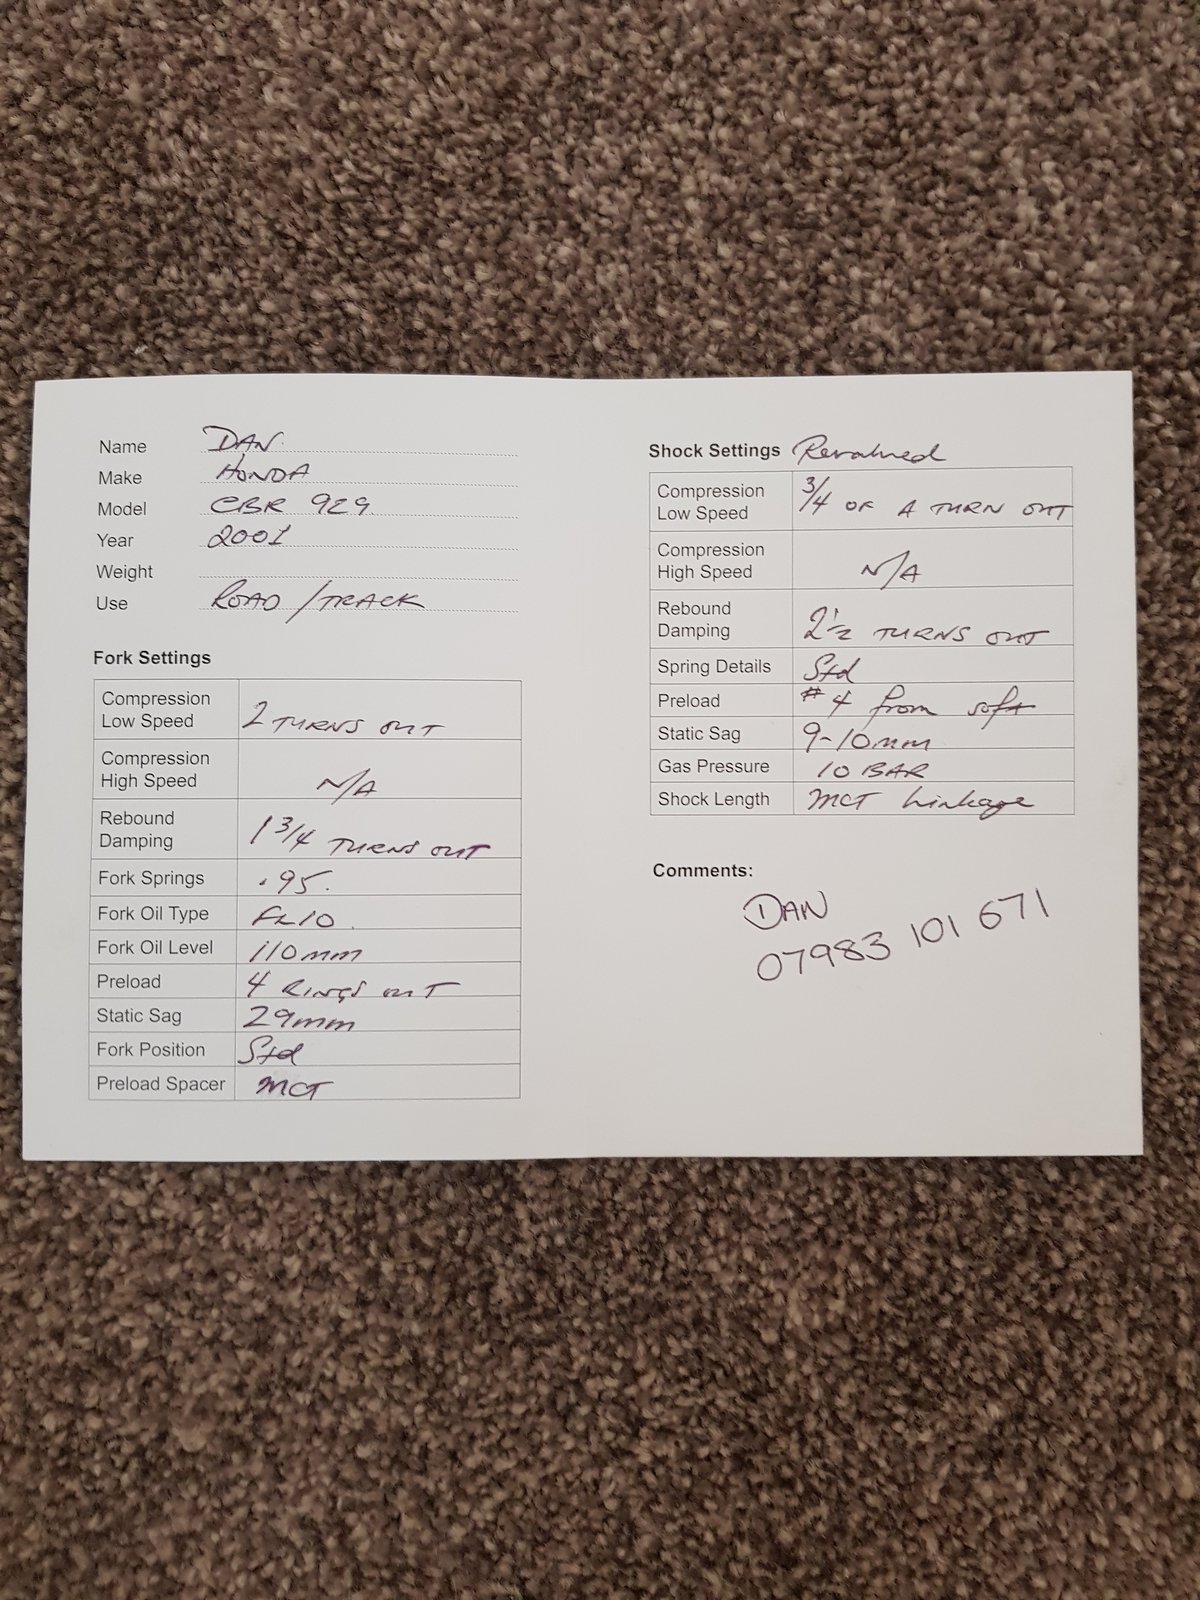 Name DAN
Make HONDA
Model CBR 929
Year 2001
Weight
Use ROAD/TRACK
Fork Settings
Compression
Low Speed 2 TURNS OUT
Compression
High Speed N/A
Rebound
Damping 1 3/4 TURNS OUT
Fork Springs .95
Fork Oil Type FL10
Fork Oil Level 110mm
Preload 4 RINGS OUT
Static Sag 29mm
Fork Position Std
Preload Spacer MCT
Shock Settings Revalved
Compression
Low Speed 3/4 OF A TURN OUT
Compression
High Speed N/A
Rebound
Damping 2 1/2 TURNS OUT
Spring Details Std
Preload #4 from soft
Static Sag 9-10mm
Gas Pressure 10 BAR
Shock Length MCT Linkage
Comments:
DAN
07983 101 671